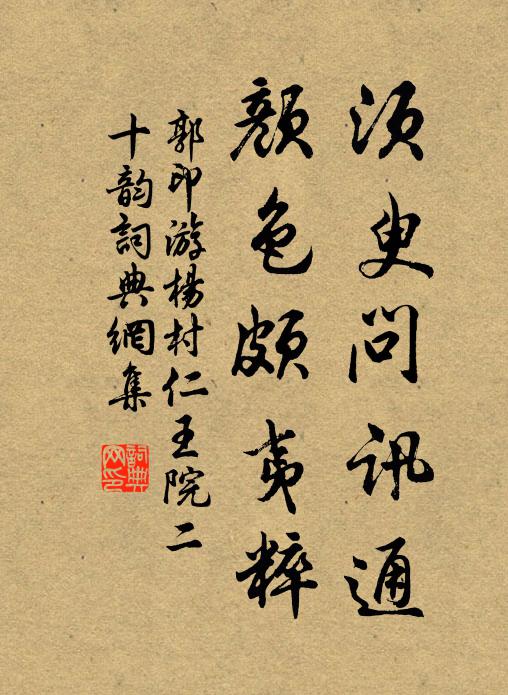 须臾问讯通
颜色颇夷粹
郭印游杨村仁王院二
十韵词典網集
詞典网印